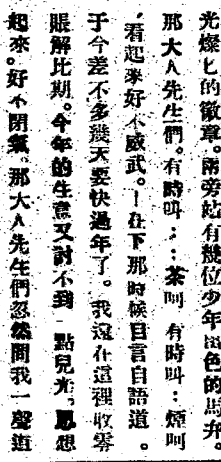 光燦匕的徽章。兩旁站有幾位少年出色的馬弁。
那大人先生們。有時叫：：茶呵 有時叫：煙呵
，看起來好不威武。！在下那時候自言自語道。
于今差不多幾天要快過年了。我還在這裡收零
賬解比期。今年的生意又討不到一點兒光。思想
起來。好不閉氣。那大人先生們忽然問我一聲道